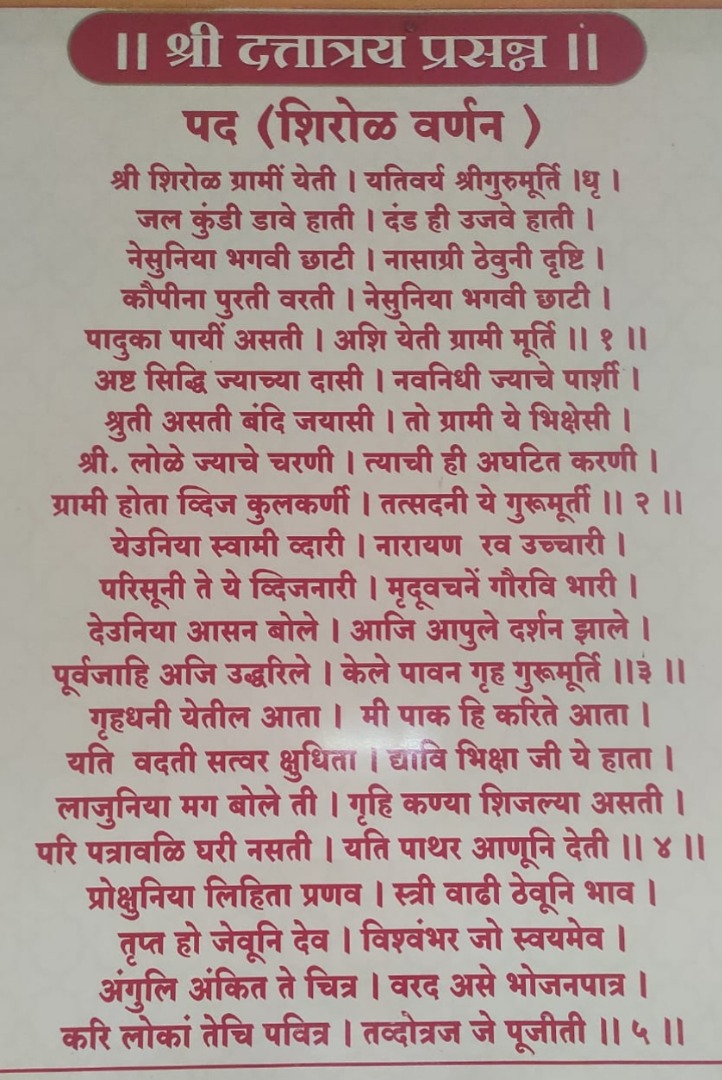 ॥ श्री दत्तात्रय प्रसन्न ॥
पद (शिरोळ वर्णन )
श्री शिरोळ ग्रामीं येती । यतिवर्य श्रीगुरुमूर्ति ।धृ ।
जल कुंडी डावे हाती । दंड ही उजवे हाती ।
नेसुनिया भगवी छाटी । नासाग्री ठेवुनी दृष्टि ।
कौपीना पुरती वरती । नेसुनिया भगवी छाटी ।
पादुका पायीं असती । अशि येती ग्रामी मूर्ति ॥ १ ॥
अष्ट सिद्धि ज्याच्या दासी । नवनिधी ज्याचे पार्शी ।
श्रुती असती बंदि जयासी । तो ग्रामी ये भिक्षेसी ।
श्री. लोळे ज्याचे चरणी । त्याची ही अघटित करणी ।
ग्रामी होता व्दिज कुलकर्णी । तत्सदनी ये गुरूमूर्ती ॥ २ ॥
येउनिया स्वामी व्दारी । नारायण रव उच्चारी ।
परिसूनी ते ये व्दिजनारी । मृदूवचनें गौरवि भारी ।
देउनिया आसन बोले । आजि आपुले दर्शन झाले ।
पूर्वजाहि अजि उद्धरिले । केले पावन गृह गुरूमूर्ति ॥३ ॥
गृहधनी येतील आता । मी पाक हि करिते आता ।
यति वदती सत्वर क्षुधिता । द्यावि भिक्षा जी ये हाता ।
लाजुनिया मग बोले ती । गृहि कण्या शिजल्या असती ।
परि पत्रावळि घरी नसती । यति पाथर आणूनि देती ॥ ४ ॥
प्रोक्षुनिया लिहिता प्रणव । स्त्री वाढी ठेवूनि भाव ।
तृप्त हो जेवूनि देव । विश्वंभर जो स्वयमेव ।
अंगुलि अंकित ते चित्र । वरद असे भोजनपात्र ।
करि लोकां तेचि पवित्र । तव्दोत्रज जे पूजीती ॥ ५ ॥